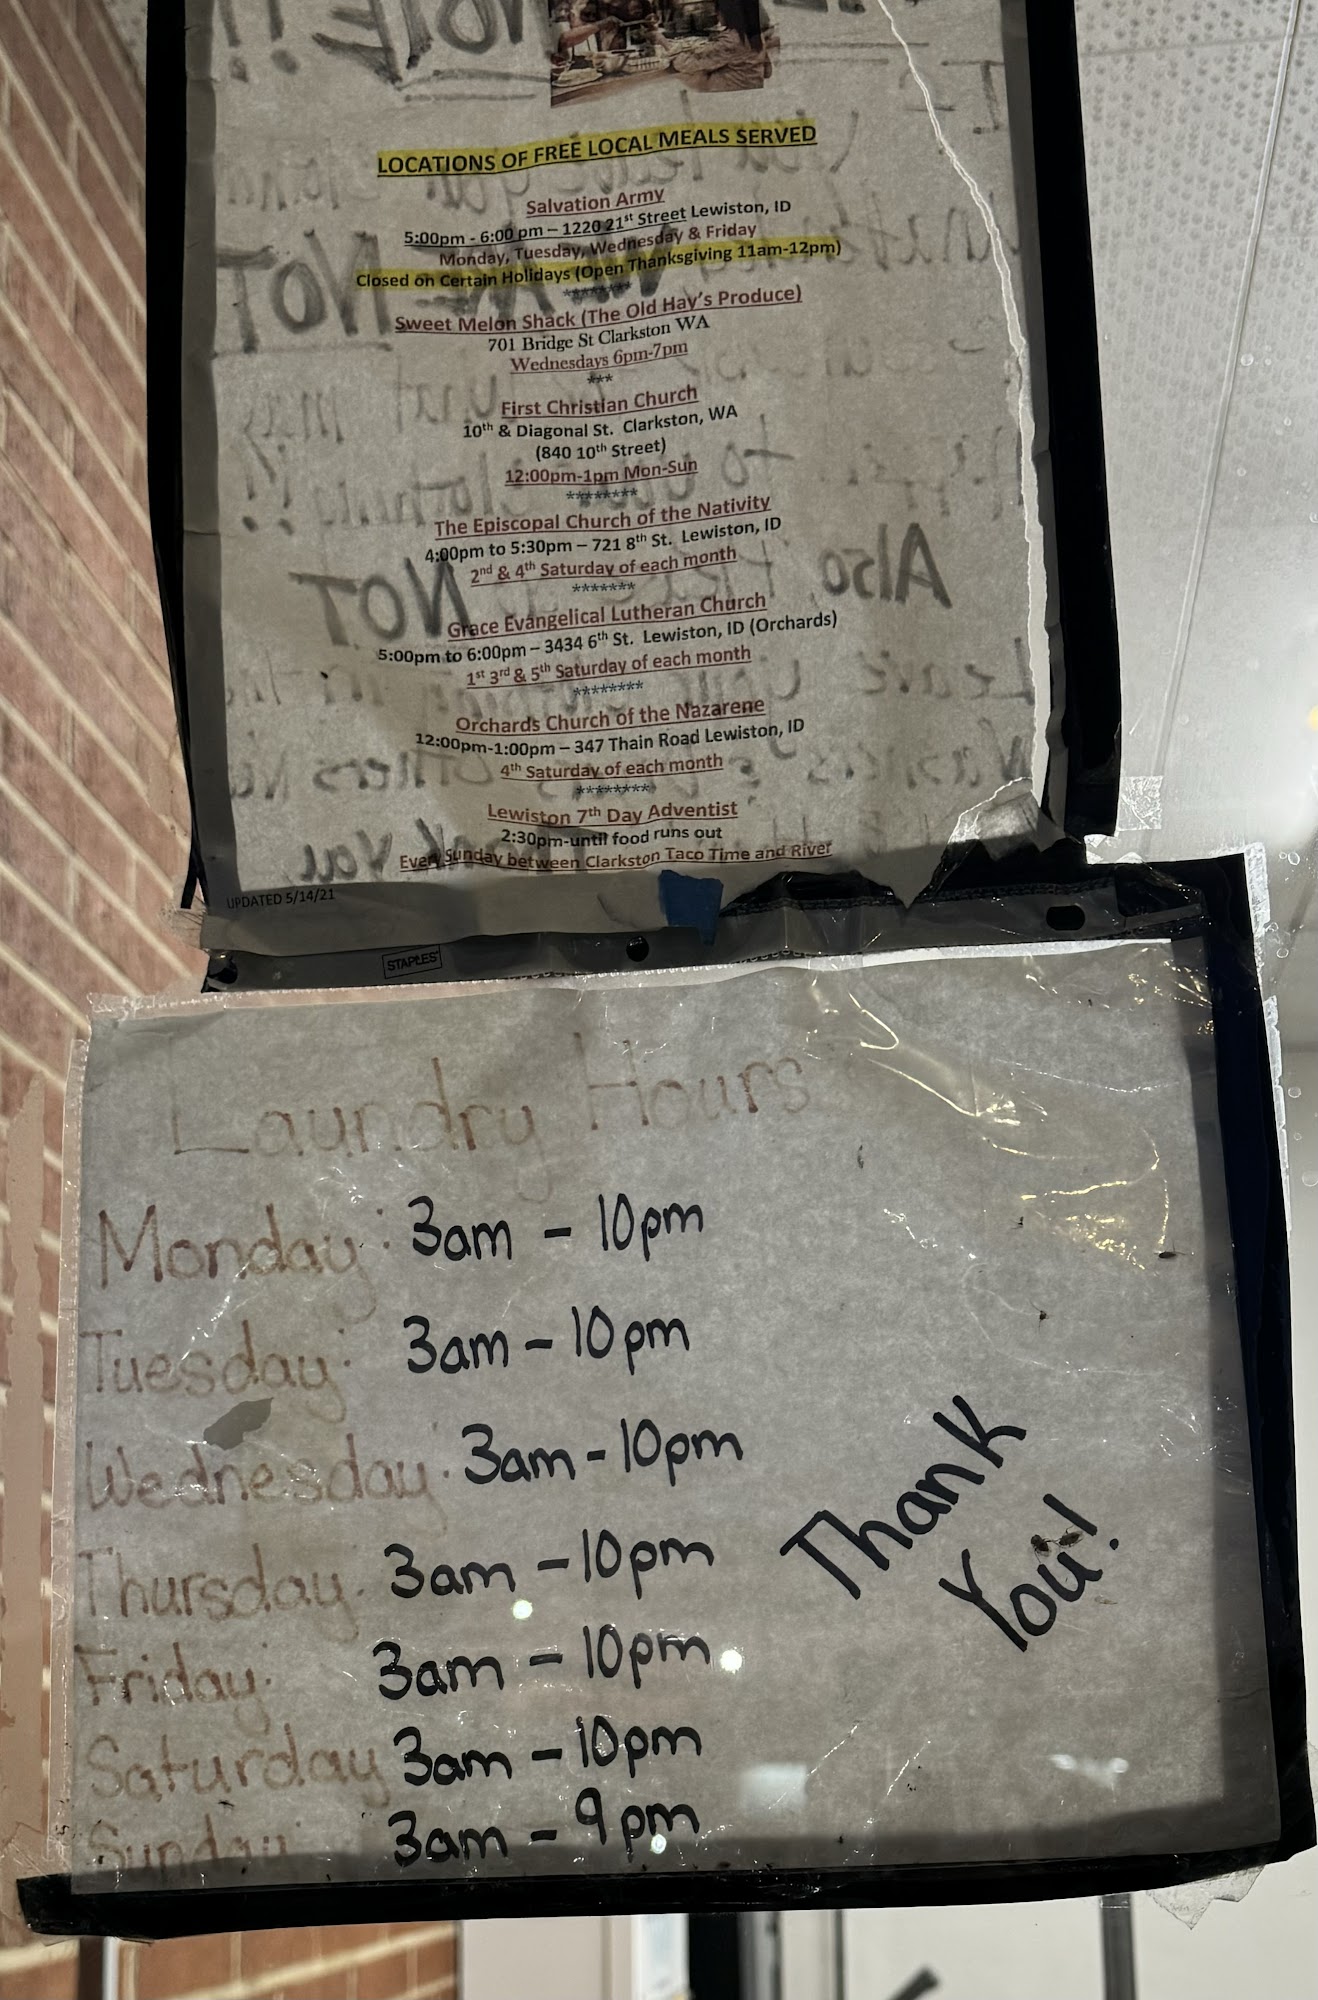 LOCATIONS OF FREE LOCAL MEALS SERVED
Salvation Army
5:00pm - 6:00 pm – 1220 21st Street Lewiston, ID
Monday, Tuesday, Wednesday & Friday
Closed on Certain Holidays (Open Thanksgiving 11am-12pm)
********
Sweet Melon Shack (The Old Hay's Produce)
701 Bridge St Clarkston WA
Wednesdays 6pm-7pm
***
First Christian Church
10th & Diagonal St. Clarkston, WA
(840 10th Street)
12:00pm-1pm Mon-Sun
********
The Episcopal Church of the Nativity
4:00pm to 5:30pm – 721 8th St. Lewiston, ID
2nd & 4th Saturday of each month
*******
Grace Evangelical Lutheran Church
5:00pm to 6:00pm – 3434 6th St. Lewiston, ID (Orchards)
1st 3rd & 5th Saturday of each month
********
Orchards Church of the Nazarene
12:00pm-1:00pm – 347 Thain Road Lewiston, ID
4th Saturday of each month
********
Lewiston 7th Day Adventist
2:30pm-until food runs out
Every Sunday between Clarkston Taco Time and River
UPDATED 5/14/21
STAPLES
Laundry Hours
Monday: 3am - 10pm
Tuesday: 3am - 10pm
Wednesday: 3am - 10pm
Thursday: 3am - 10pm
Friday: 3am - 10pm
Saturday 3am - 10pm
Sunday: 3am - 9pm
Thank
You!